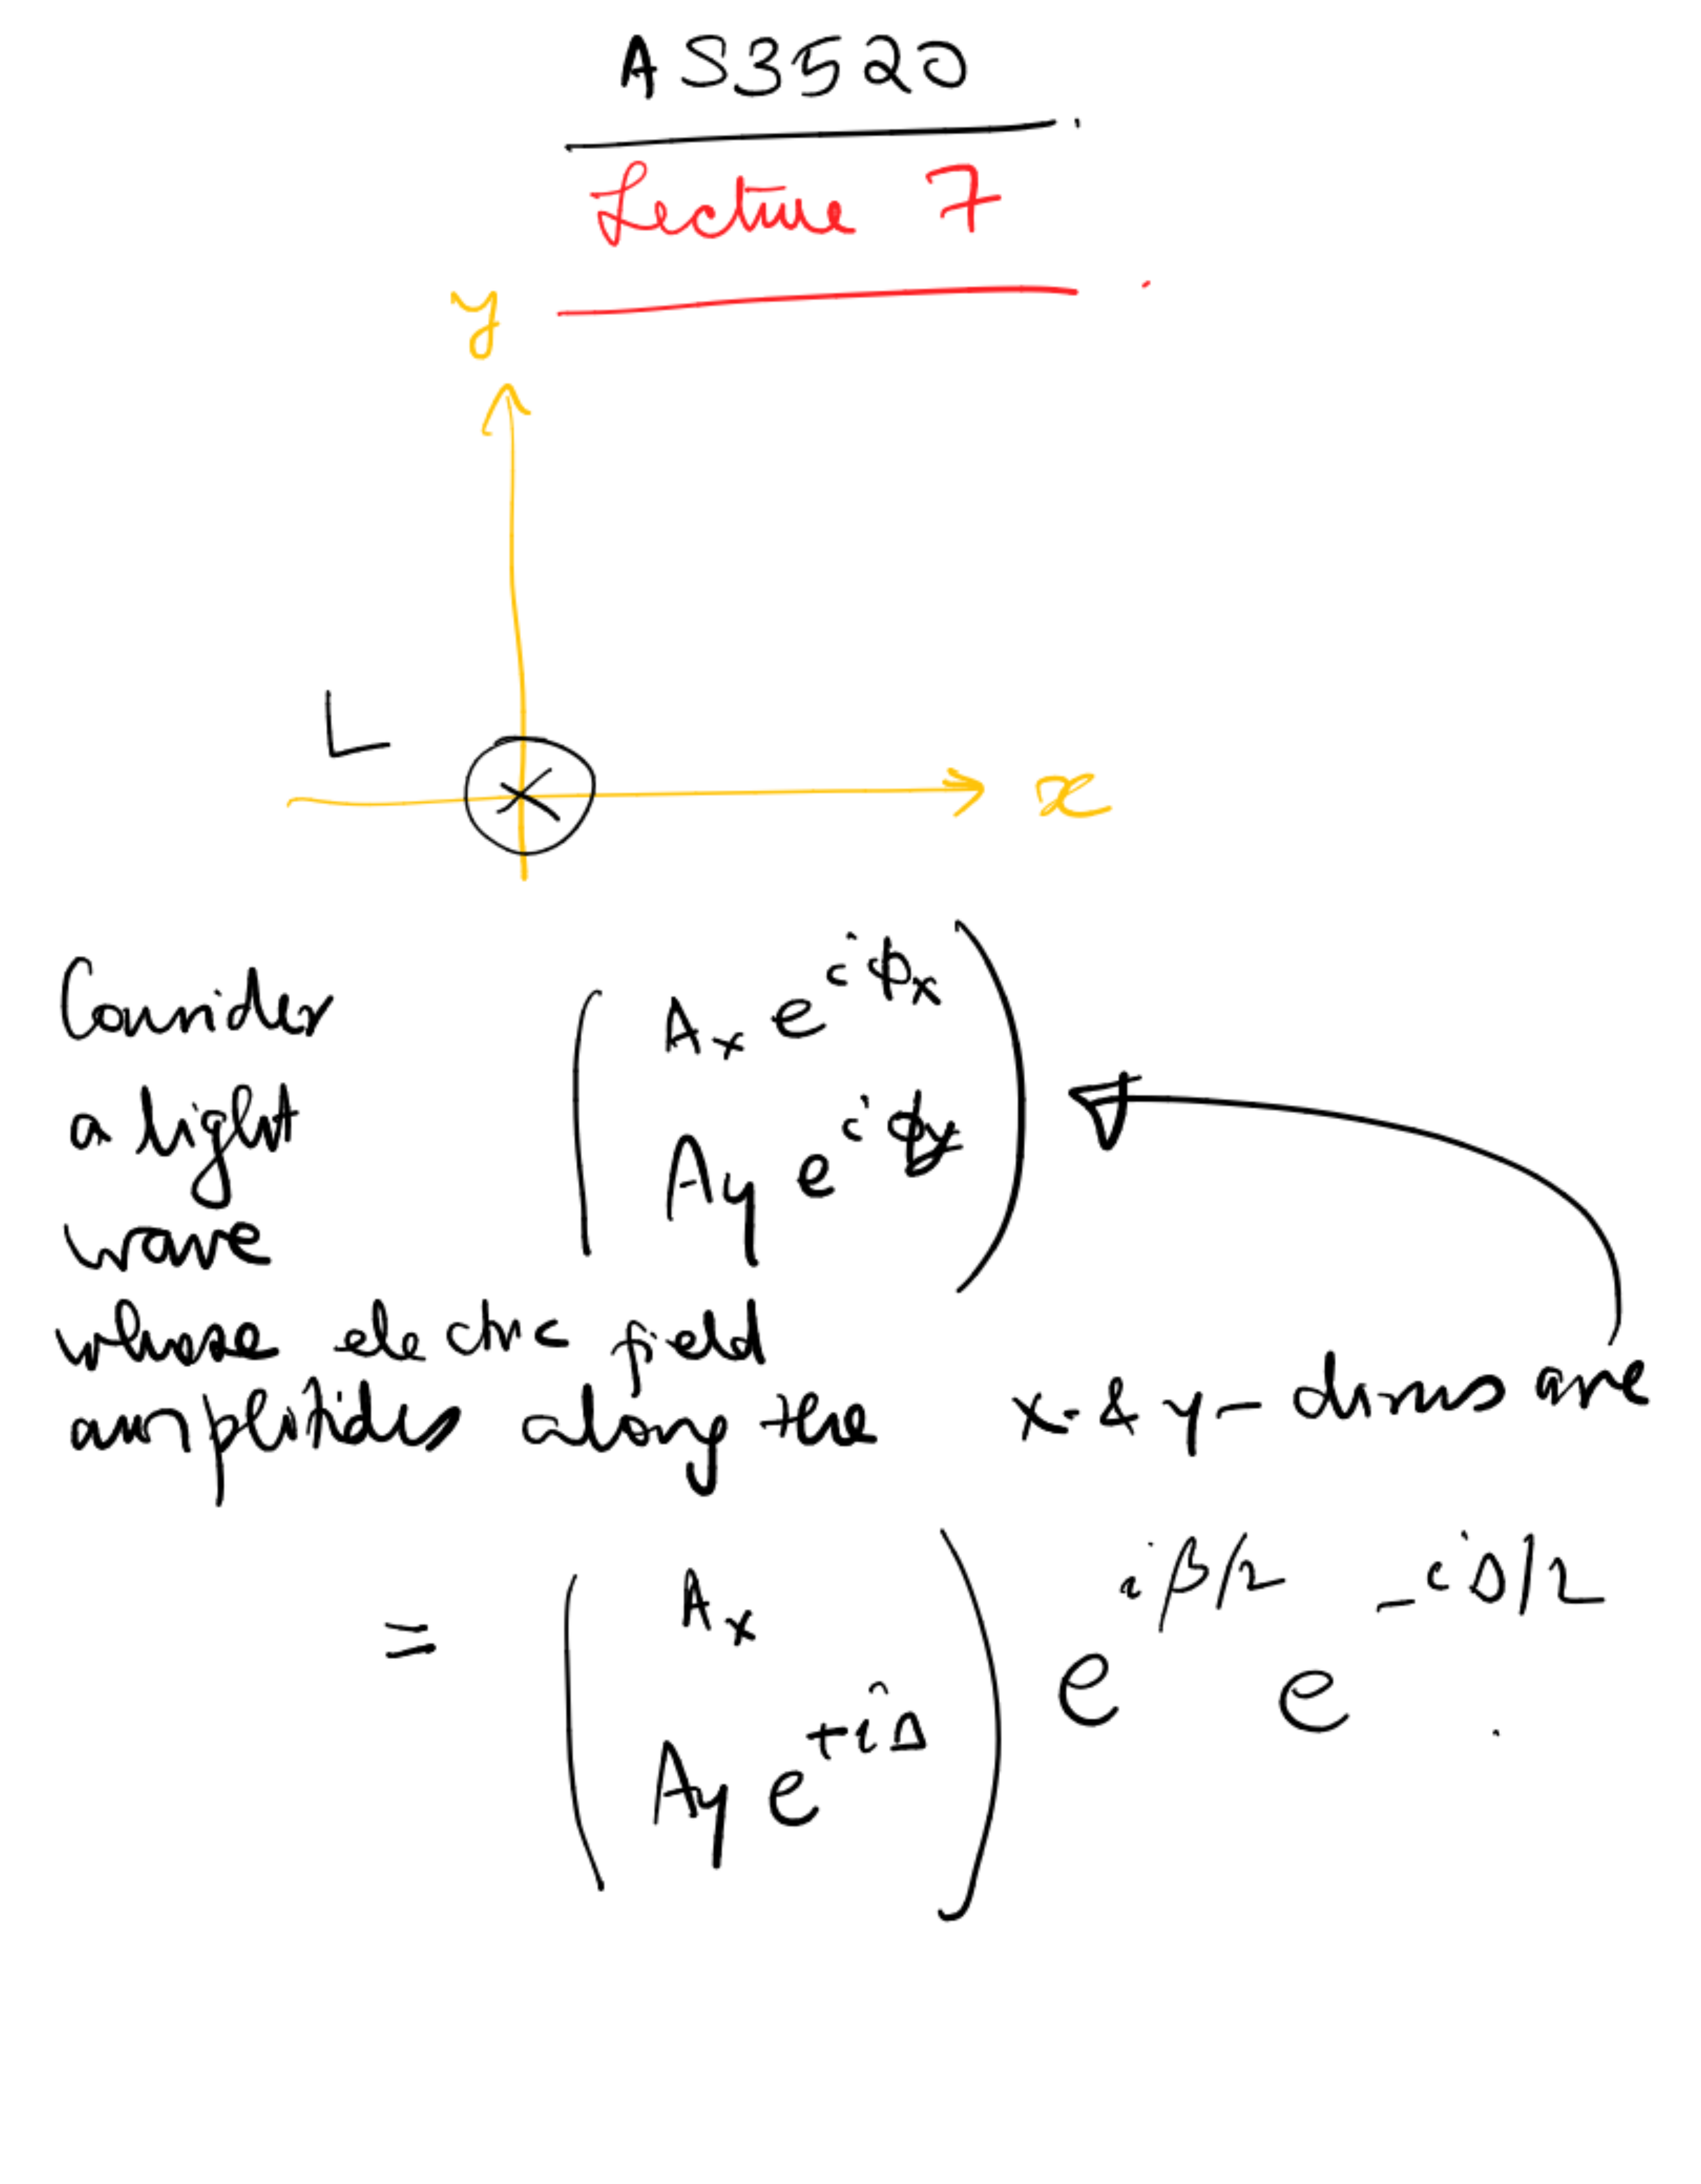 AS3520
Lecture 7
y
L
x
Consider
a light
wave
whose electric field
amplitides along the x- & y- dirns are
( A_x e^{iϕ_x}
A_y e^{iϕ_y} )
= ( A_x
A_y e^{+iΔ} ) e^{iβ/2} e^{-iΔ/2}.